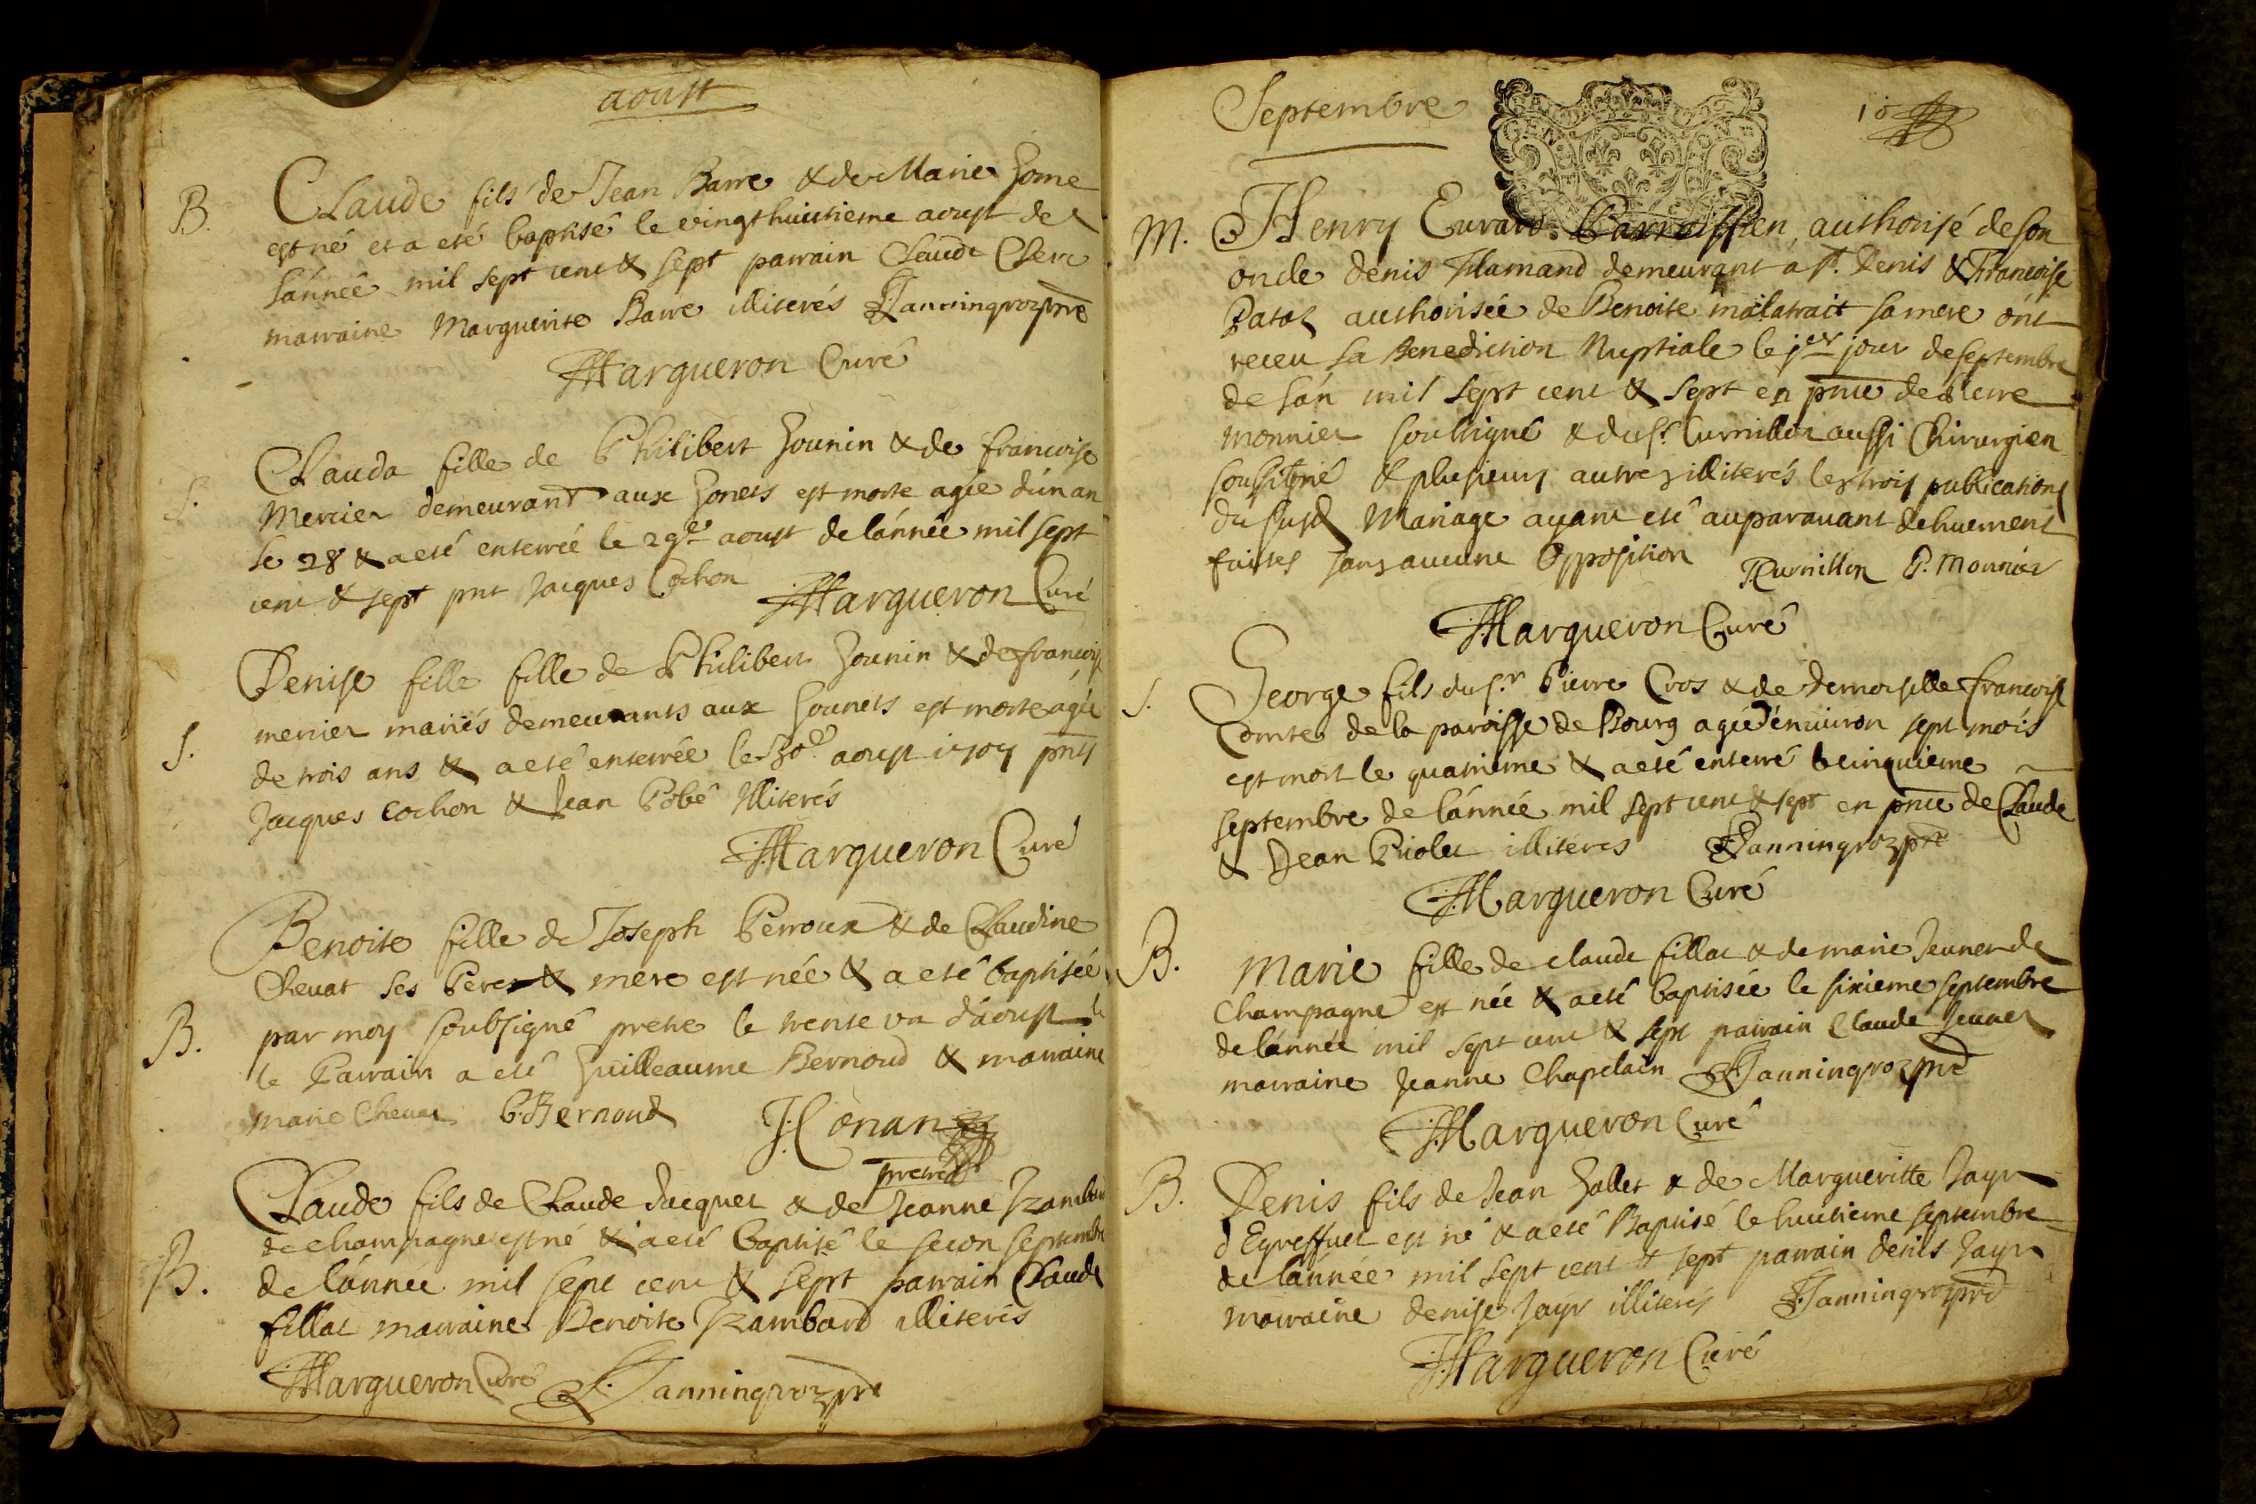 aoust
B. Claude fils de Jean Barre & de Marie Gome
est né et a eté baptisé le vingthuictieme aoust de
l'année mil sept cent & sept parrain Claude Clerc
marraine Marguerite Barre illiterés Janningroz pre
Margueron Curé
S. Clauda fille de Philibert Gounin & de francoise
Mercier demeurant aux Gonets est morte agée d'un an
le 28 & a eté enterrée le 29e aoust de l'année mil sept
cent & sept pnt Jacques Cochon Margueron Curé
Denise fille fille de Philibert Gounin & de francoise
S. mercier mariés demeurants aux Gounets est morte agée
de trois ans & a eté enterrée le 30e aoust 1707 pnts
Jacques Cochon & Jean Pobé Illiterés
Margueron Curé
Benoite fille de Joseph Perroux & de Claudine
Chevat ses Peres & mere est née & a eté baptisée
B. par moy soubsigné pretre le trente un d'aoust
le Parrain a eté Guilleaume Bernoud & marraine
marie Chevat G. Bernoud J. Conan
pretre
Claude fils de Claude Jacquet & de Jeanne
de champagne est né & a eté baptisé le secon septembre
B. de l'année mil sept cent & sept parrain Claude
fillat marraine Benoite Izambard illiterés
Margueron Curé Janningroz pre
Septembre 10
M. Henry Evrard Parroissien, authorisé de son
oncle denis Flamand demeurant a st. Denis & Francoise
Pataz authorisée de Benoite malatrait sa mere ont
receu la Benediction Nuptiale le jer jour de septembre
de l'an mil sept cent & sept en pnce de Pierre
monnier soubsigné & du sr. Curnillon aussi Chirurgien
soubsigné & plusieurs autres illiterés les trois publications
du susd Mariage ayant eté auparavant dehuement
faites sans aucune Opposition Curnillon P. Monnier
Margueron Curé
S. George fils du s.r Pierre Cros & de demoiselle francoise
Comte de la paroisse de Bourg agé d'environ sept mois
est mort le quatrieme & a eté enterré le cinquieme
septembre de l'année mil sept cent & sept en pnce de Claude
& Jean Priolet illiterés Janningroz pre
Margueron Curé
B. Marie fille de claude fillat & de marie Jeunet de
Champagne est née & a eté baptisée le sixieme septembre
de l'année mil sept cent & sept parrain Claude Jeunet
marraine Jeanne Chapelain Janningroz pre
Margueron Curé
B. Denis fils de Jean Gallet & de Margueritte Jayr
d'Eyreffuet est né & a eté Baptisé le huitieme septembre
de l'année mil sept cent & sept parrain denis Jayr
marraine denise Jayr illiterés Janningroz pre
Margueron Curé